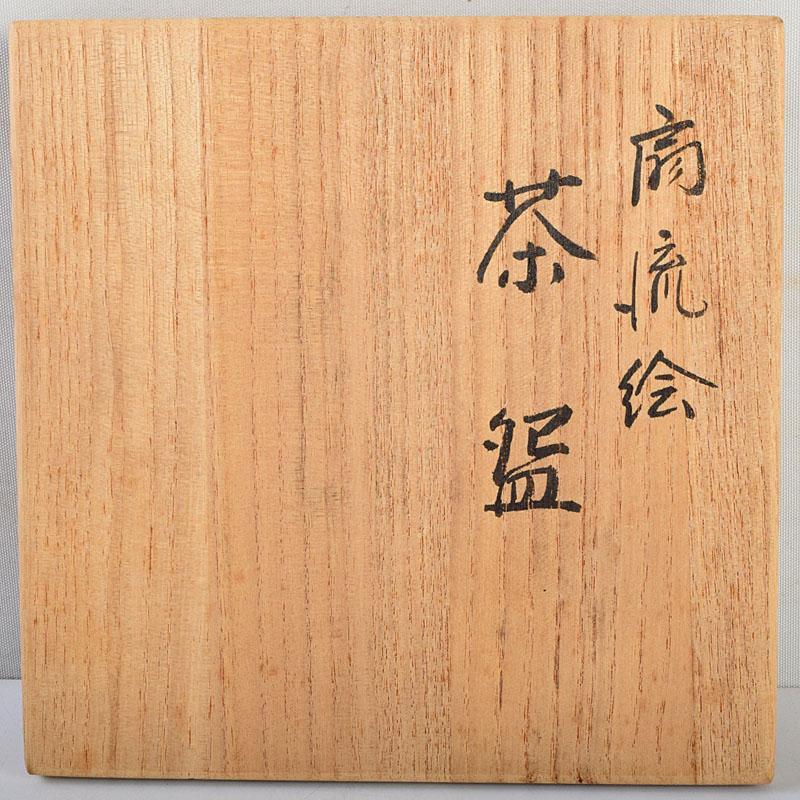 扇流絵
茶盌